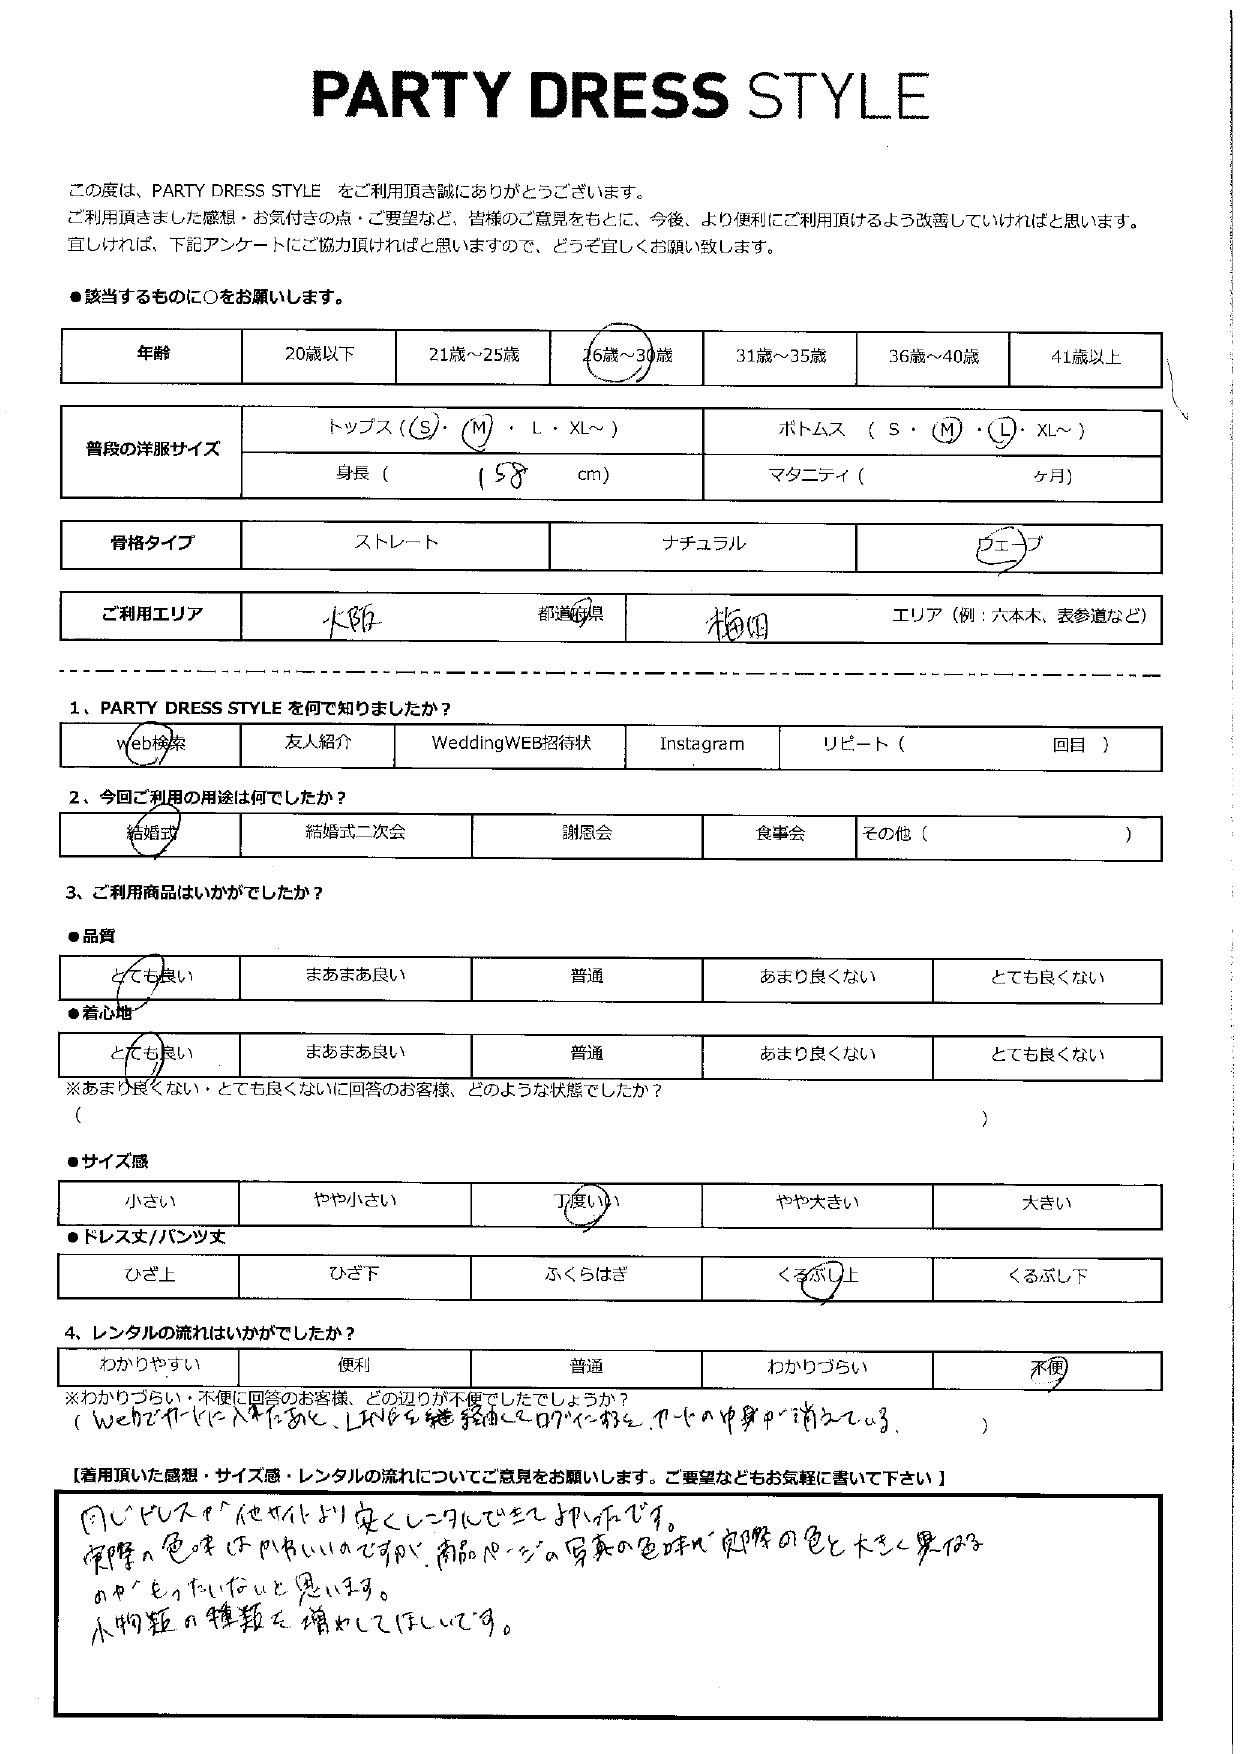 PARTY DRESS STYLE
この度は、PARTY DRESS STYLE をご利用頂き誠にありがとうございます。
ご利用頂きました感想・お気付きの点・ご要望など、皆様のご意見をもとに、今後、より便利にご利用頂けるよう改善していければと思います。
宜しければ、下記アンケートにご協力頂ければと思いますので、どうぞ宜しくお願い致します。
●該当するものに○をお願いします。
年齢 20歳以下 21歳～25歳 26歳～30歳 31歳～35歳 36歳～40歳 41歳以上
普段の洋服サイズ トップス ( S ・ M ・ L ・ XL～ ) ボトムス ( S ・ M ・ L ・ XL～ )
身長 ( 158 cm) マタニティ ( ヶ月)
骨格タイプ ストレート ナチュラル ウェーブ
ご利用エリア 大阪 都道府県 梅田 エリア（例：六本木、表参道など）
1、PARTY DRESS STYLE を何で知りましたか？
web検索 友人紹介 WeddingWEB招待状 Instagram リピート ( 回目 )
2、今回ご利用の用途は何でしたか？
結婚式 結婚式二次会 謝恩会 食事会 その他 ( )
3、ご利用商品はいかがでしたか？
●品質
とても良い まあまあ良い 普通 あまり良くない とても良くない
●着心地
とても良い まあまあ良い 普通 あまり良くない とても良くない
※あまり良くない・とても良くないに回答のお客様、どのような状態でしたか？
( )
●サイズ感
小さい やや小さい 丁度いい やや大きい 大きい
●ドレス丈/パンツ丈
ひざ上 ひざ下 ふくらはぎ くるぶし上 くるぶし下
4、レンタルの流れはいかがでしたか？
わかりやすい 便利 普通 わかりづらい 不便
※わかりづらい・不便に回答のお客様、どの辺りが不便でしたでしょうか？
( Webでカートに入れたあと、LINEを経由してログインすると、カートの中身が消えている。 )
【着用頂いた感想・サイズ感・レンタルの流れについてご意見をお願いします。ご要望などもお気軽に書いて下さい 】
同じドレスが他サイトより安くレンタルできてよかったです。
実際の色味はかわいいのですが、商品ページの写真の色味が実際の色と大きく異なる
のがもったいないと思います。
小物類の種類を増やしてほしいです。